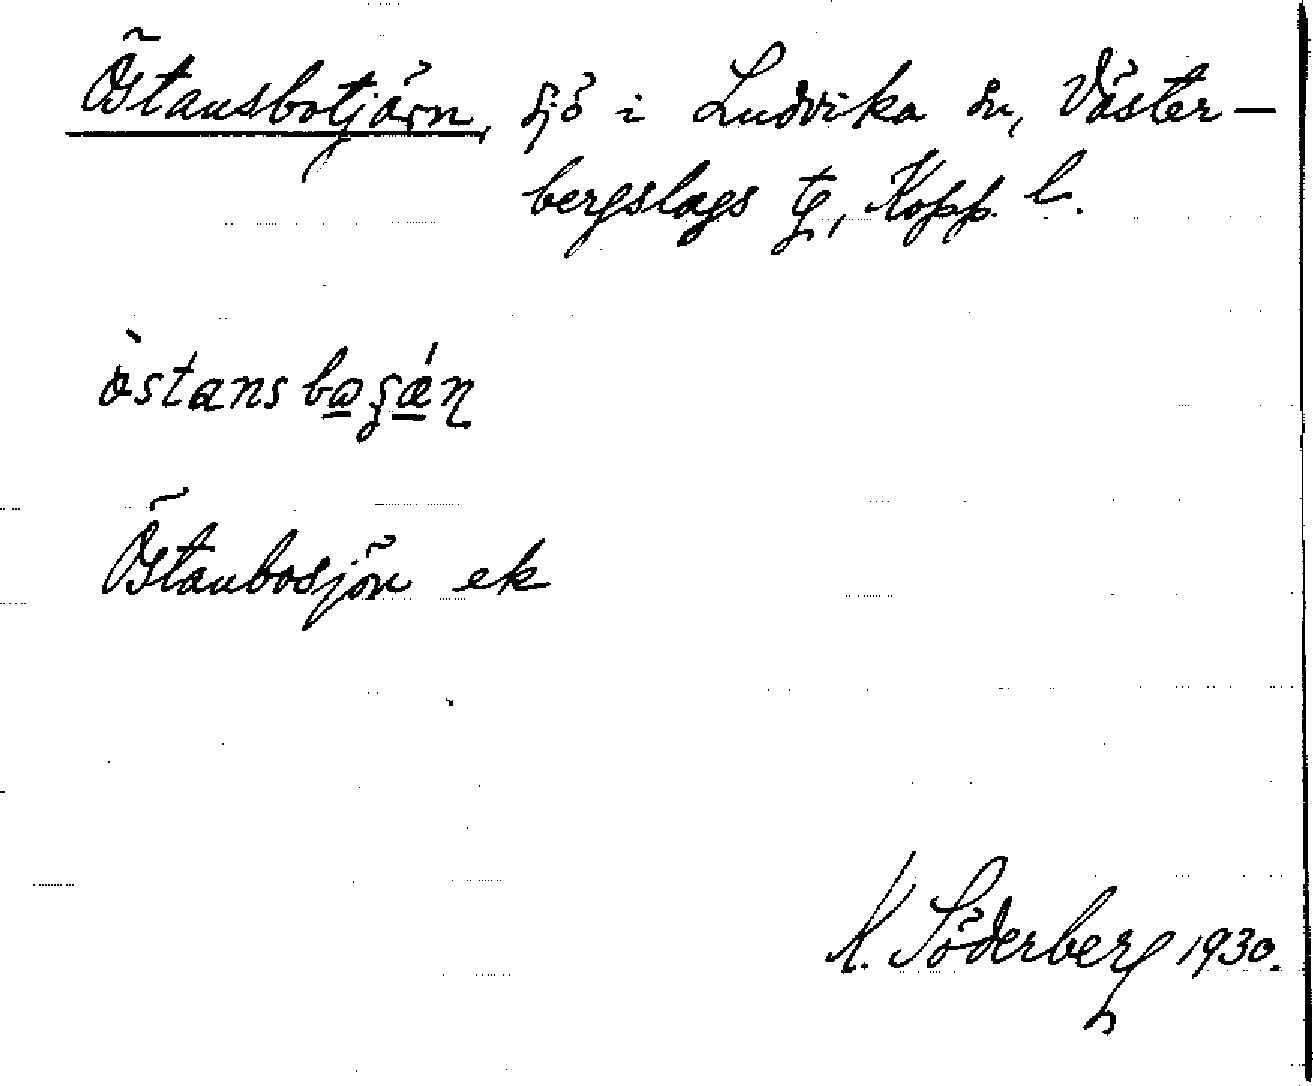 Östansbotjärn, sjö i Ludvika sn, Väster-
bergslags tg, Kopp. l.
Östanbosjön ek
K. Söderberg 1930.